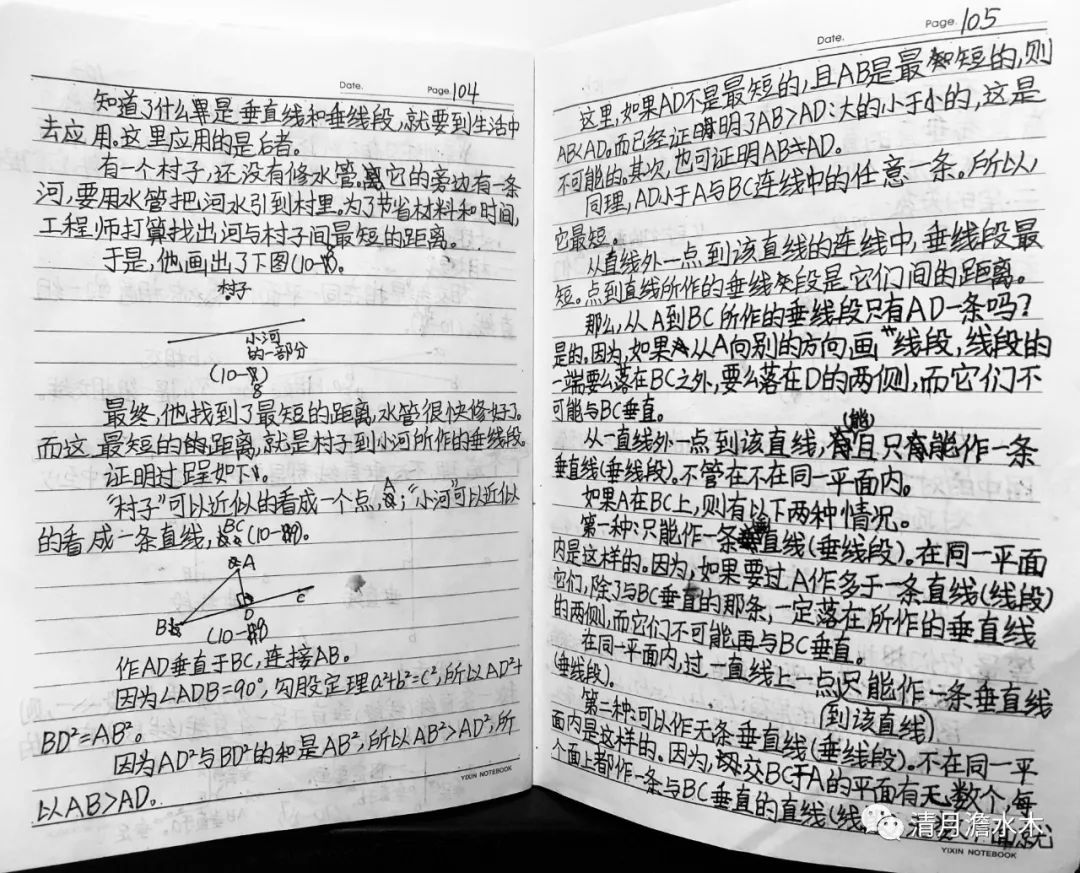 Date.
Page.104
知道了什么是垂直线和垂线段,就要到生活中
去应用。这里应用的是后者。
有一个村子,还没有修水管。它的旁边有一条
河,要用水管把河水引到村里。为了节省材料和时间,
工程师打算找出河与村子间最短的距离。
于是,他画出了下图(10-8)。
村子
小河
的一部分
(10-8)
最终,他找到了最短的距离,水管很快修好了。
而这最短的距离,就是村子到小河所作的垂线段。
证明过程如下:
“村子”可以近似的看成一个点,A;“小河”可以近似
的看成一条直线,BC(10-9)。
A
B
D
C
(10-9)
作AD垂直于BC,连接AB。
因为∠ADB=90°,勾股定理a²+b²=c²,所以AD²+
BD²=AB²。
因为AD²与BD²的和是AB²,所以AB²>AD²,所
以AB>AD。
YIXIN NOTEBOOK
Date.
Page.105
这里,如果AD不是最短的,且AB是最短的,则
AB<AD。而已经证明了AB>AD:大的小于小的,这是
不可能的。其次,也可证明AB≠AD。
同理,AD小于A与BC连线中的任意一条。所以,
它最短。
从直线外一点到该直线的连线中,垂线段最
短。点到直线所作的垂线段是它们间的距离。
那么,从A到BC所作的垂线段只有AD一条吗?
是的。因为,如果从A向别的方向画线段,线段的
一端要么落在BC之外,要么落在D的两侧,而它们不
可能与BC垂直。
从一直线外一点到该直线,能且只能作一条
垂直线(垂线段)。不管在不在同一平面内。
如果A在BC上,则有以下两种情况。
第一种:只能作一条垂直线(垂线段)。在同一平面
内是这样的。因为,如果要过A作多于一条直线(线段)
它们,除了与BC垂直的那条,一定落在所作的垂直线
的两侧,而它们不可能再与BC垂直。
在同一平面内,过一直线上一点只能作一条垂直线
(垂线段)。
(到该直线)
第二种:可以作无数条垂直线(垂线段)。不在同一平
面内是这样的。因为,交BC于A的平面有无数个,每
个面上都作一条与BC垂直的直线(线
清月澹水木
YIXIN NOTEBOOK